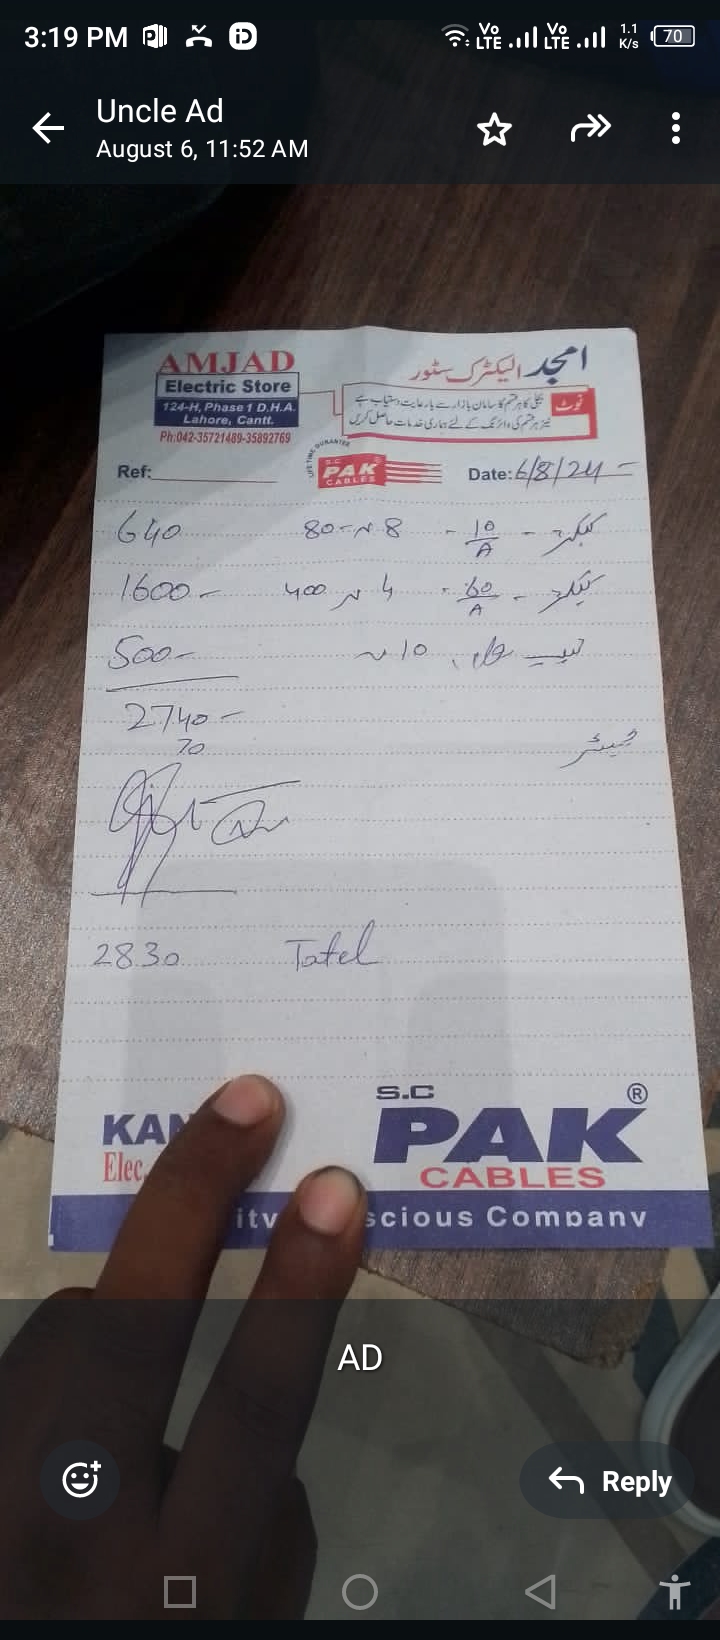 3:19 PM
Vo LTE Vo LTE 1.1 K/s 70
Uncle Ad
August 6, 11:52 AM
AMJAD
Electric Store
124-H, Phase 1 D.H.A.
Lahore, Cantt.
Ph:042-35721489-35892769
امجد الیکٹرک سٹور
نوٹ
بجلی کا ہر قسم کا سامان بازار سے بارعایت دستیاب ہے
نیز ہر قسم کی وائرنگ کے لئے ہماری خدمات حاصل کریں
S.C
PAK
CABLES
Ref:
Date: 6/8/24
640 80 8 10/A
1600 400 4 60/A
500 10
2740
70
2830 Tatel
KAN
Elec.
S.C
PAK ®
CABLES
ity scious Company
AD
Reply